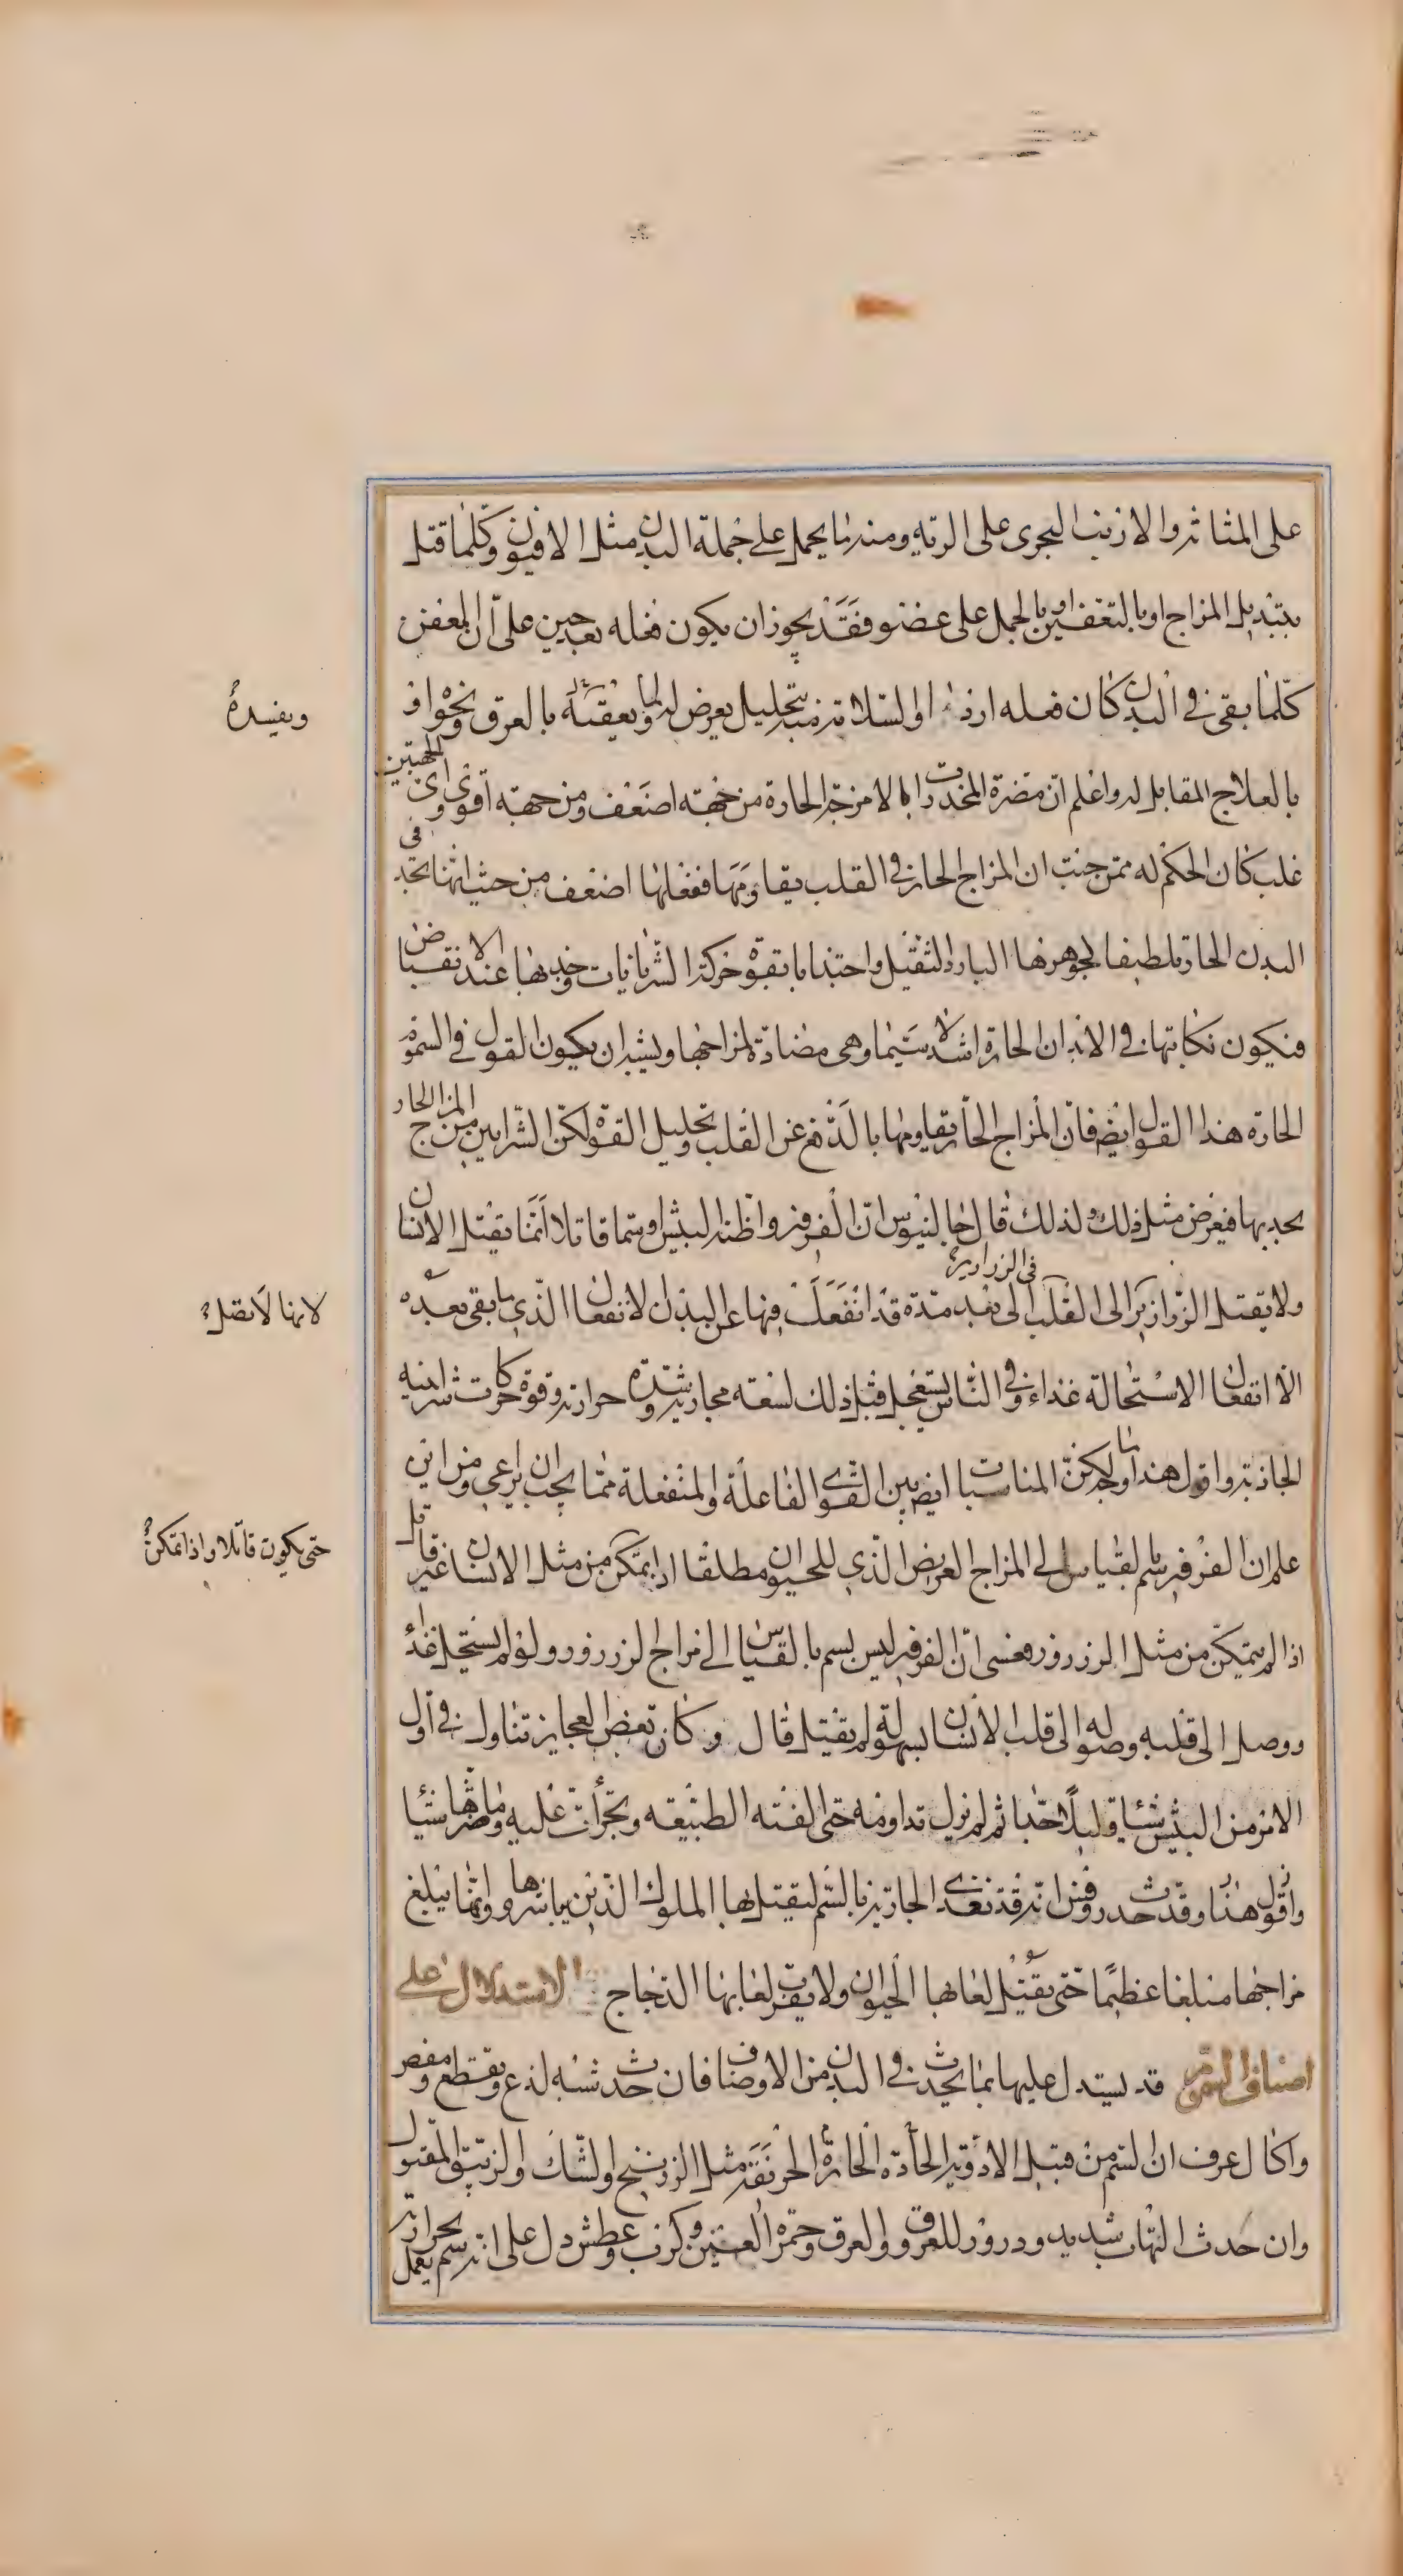 على المثانة والارنب البحرى على الرية ومنه ما يحمل على جملة البدن مثل الافيون وكلما قتل
بتبديل المزاج او بالتعفين او بالحمل على عضو فقد يجوز ان يكون فعله بعد حين على ان المعفن
كلما بقى فى البدن كان فعله ارذا او السلامة منه بتحليل يعرض له ولما يعقبه بالعرق ونحوه او
بالعلاج المقابل له واعلم ان مضرة المخدرات بالامزجة الحارة من جهة اضعف ومن جهة اقوى واى الجهتين
غلب كان الحكم له فمن جنبة ان المزاج الحار فى القلب يقاومها ففعلها اضعف من حيث انها تجد فى
البدن الحار ملطفا لجوهرها البارد الثقيل واجتذابا بقوة حركة الشريانات وجذبها عند الانقباض
فيكون نكايتها فى الابدان الحارة اشد لا سيما وهى مضادة لمزاجها ويشبه ان يكون القول فى السموم
الحارة هذا القول ايضا فان المزاج الحار يقاومها بالدفع عن القلب وتحليل القوة لكن الشرايين من المزاج الحار
يجذبها فيعرض مثل ذلك ولذلك قال جالينوس ان الفرفير واظنه البيش او سما قاتلا انما يقتل الانسان
ولا يقتل الزرازير الى القلب الى بعد مدة قد انفعلت فيها عن البدن الانفعال الذى ما بقى بعده
فى الزرازير
الا انفعال الاستحالة غذاء وفى الناس يستعجل قبل ذلك لسعة مجاريه وشدة حرارته وقوة حركات شرايينه
الجاذبة واقول هذا ما وجد لكن المناسبات ايضا بين القوى الفاعلة والمنفعلة مما يجب ان يراعى ومن اين
علم ان الفرفير سم بالقياس الى المزاج العريض الذى للحيوان مطلقا اذا تمكن من مثل الانسان غير قاتل
اذا لم يتمكن من مثل الزرزور فعسى ان الفرفير ليس بسم بالقياس الى مزاج الزرزور ولو لم يستحل غذاء
ووصل الى قلبه وصوله الى قلب الانسان بسهولة لم يقتل قال وكان بعض العجايز تناول فى اول
الامر من البيش شيئا قليلا جدا ثم لم تزل تداومه حتى الفته الطبيعة وتجرأت عليه وما ضرها شيئا
واقول هذا وقد حدث روفس انه قد تغذى الجارية بالسم ليقتل بها الملوك الذين يباشرونها وانما يبلغ
مزاجها مبلغا عظيما حتى يقتل لعابها الحيوان ولا يقرب لعابها الدجاج الاستدلال على
اصناف السموم قد يستدل عليها بما يحدث فى البدن من الاوصاف فان حدث شبه لذع وتقطيع ومغص
واكال عرف ان السم من قبيل الادوية الحادة الحارة المحرقة مثل الزرنيخ والشك والزيبق المقتول
وان حدث التهاب شديد ودرور للعروق والعرق وحمرة العينين وكرب وعطش دل على انه سم يعمل بحرارته
ويفسده
لانها لا تصل
حتى يكون قاتلا واذا تمكن